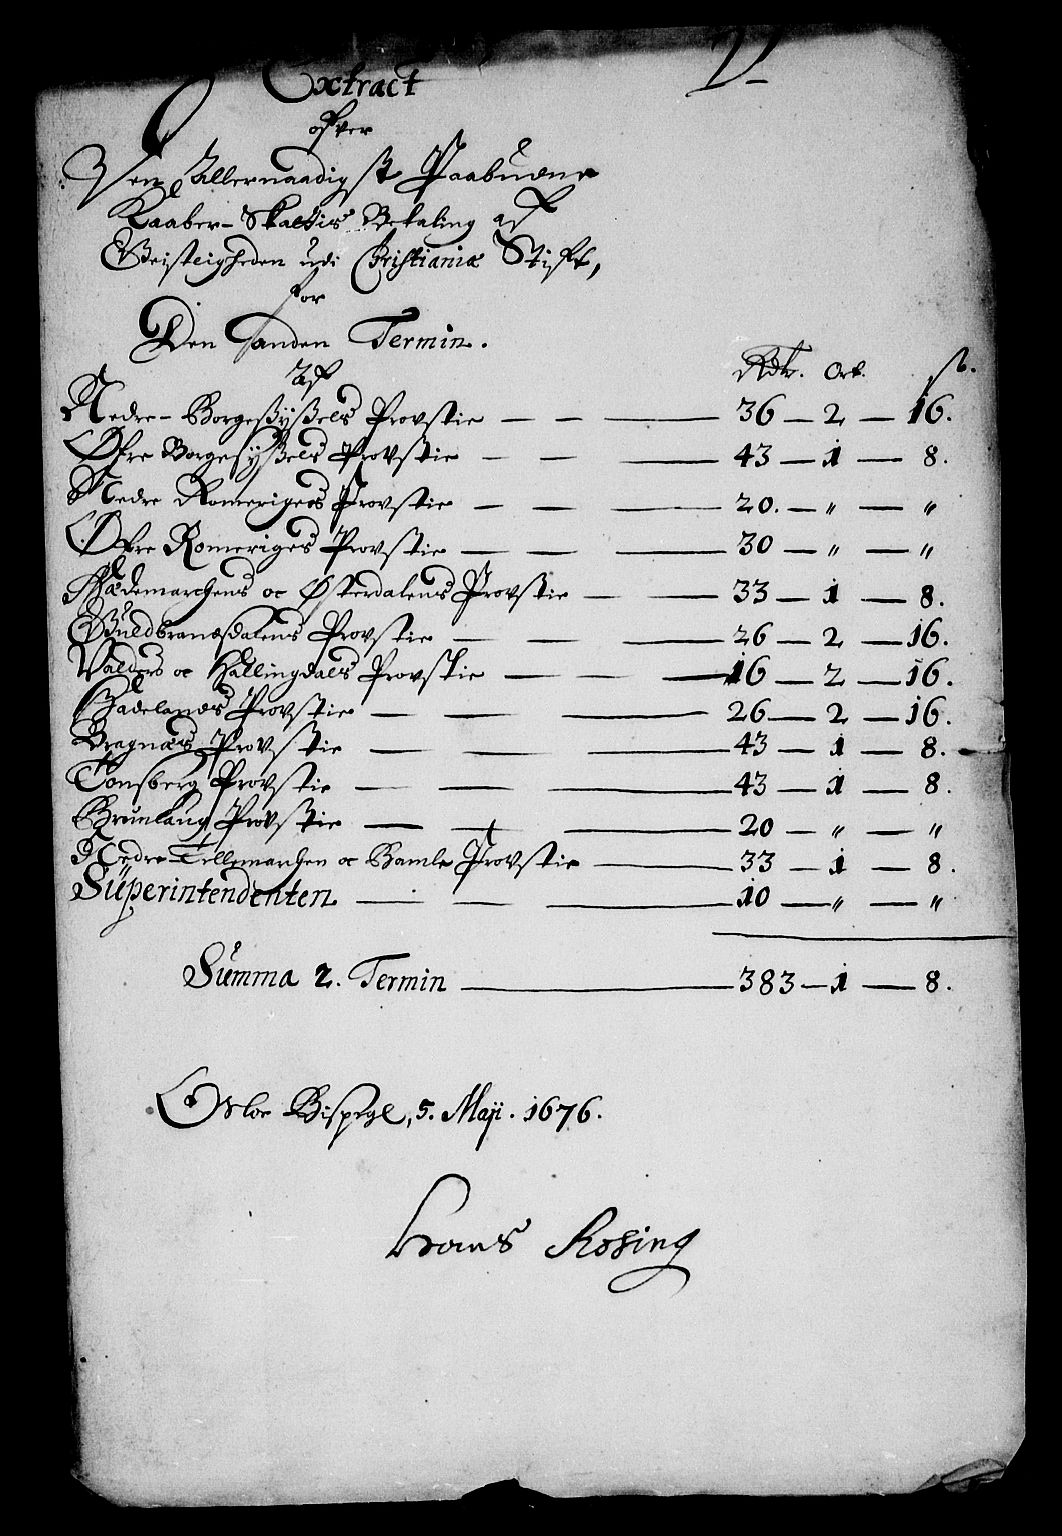 Extract
ofver
Den Allernaadigst Paabudne
Kaaber-Skattis Betaling af
Geistligheden udi Christianiæ Stift,
for
Den Anden Termin.
Af Rdlr. Ort. ß.
Nedre-Borgesyssels Provstie — — — 36 — 2 — 16.
Øfre Borgesyssels Provstie — — — 43 — 1 — 8.
Nedre Romeriges Provstie — — — 20. — " — "
Øfre Romeriges Provstie — — — 30 — " — "
Hedemarchens oc Østerdalens Provstie — — 33 — 1 — 8.
Guldbrandsdalens Provstie — — — 26 — 2 — 16.
Valders oc Hallingdals Provstie — — — 16 — 2 — 16.
Hadelands Provstie — — — 26 — 2 — 16.
Bragnæs Provstie — — — 43 — 1 — 8.
Tønsberg Provstie — — — 43 — 1 — 8.
Brunlaug Provstie — — — 20 — " — "
Nedre Tellemarchen oc Bamle Provstie — 33 — 1 — 8.
Superintendenten — — — 10 — " — "
Summa 2. Termin — 383 — 1 — 8.
Osloe Bispegl, 5. Maji. 1676.
Hans Rosing